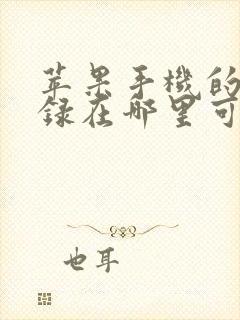 苹果手機的
録在哪里可
也耳